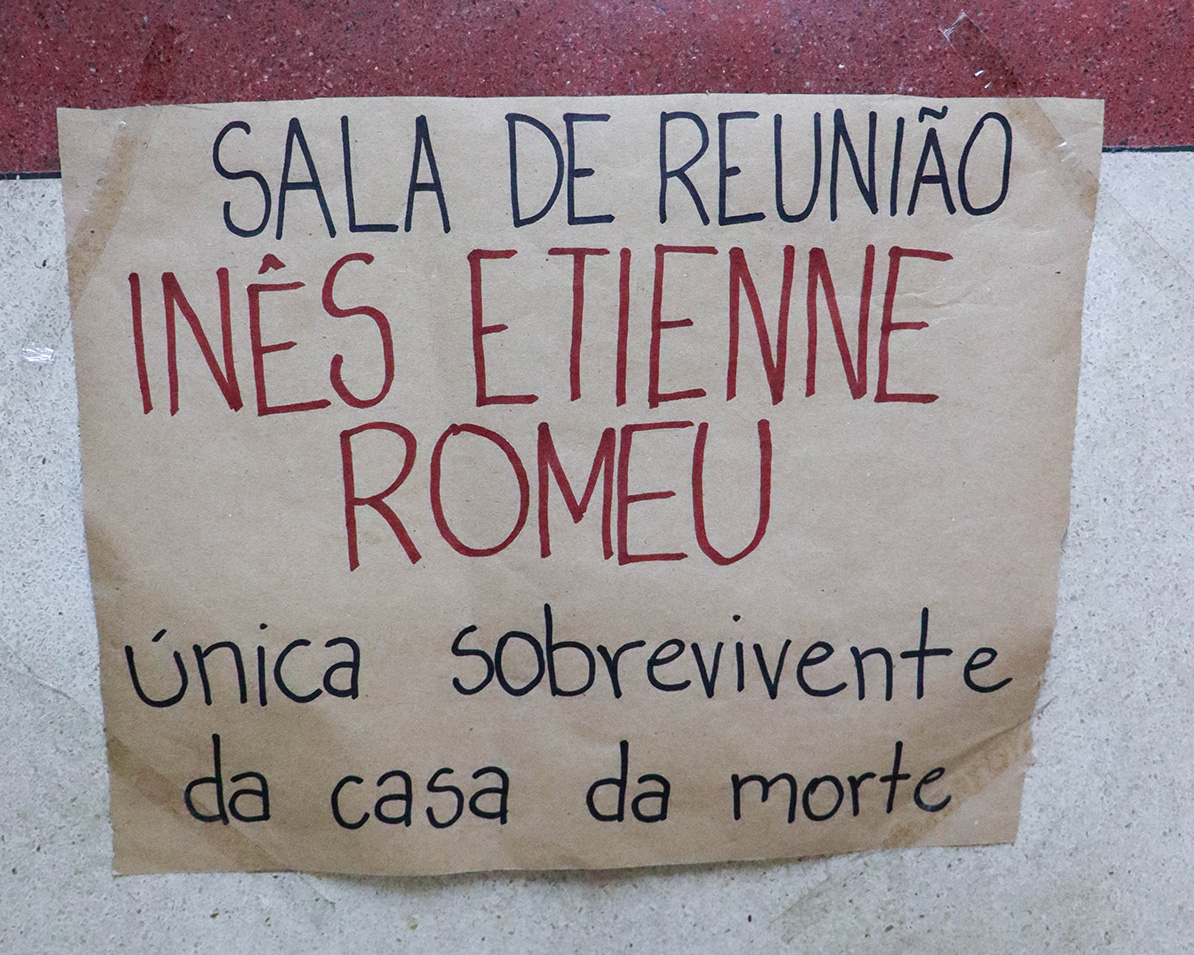 SALA DE REUNIÃO
INÊS ETIENNE
ROMEU
única sobrevivente
da casa da morte